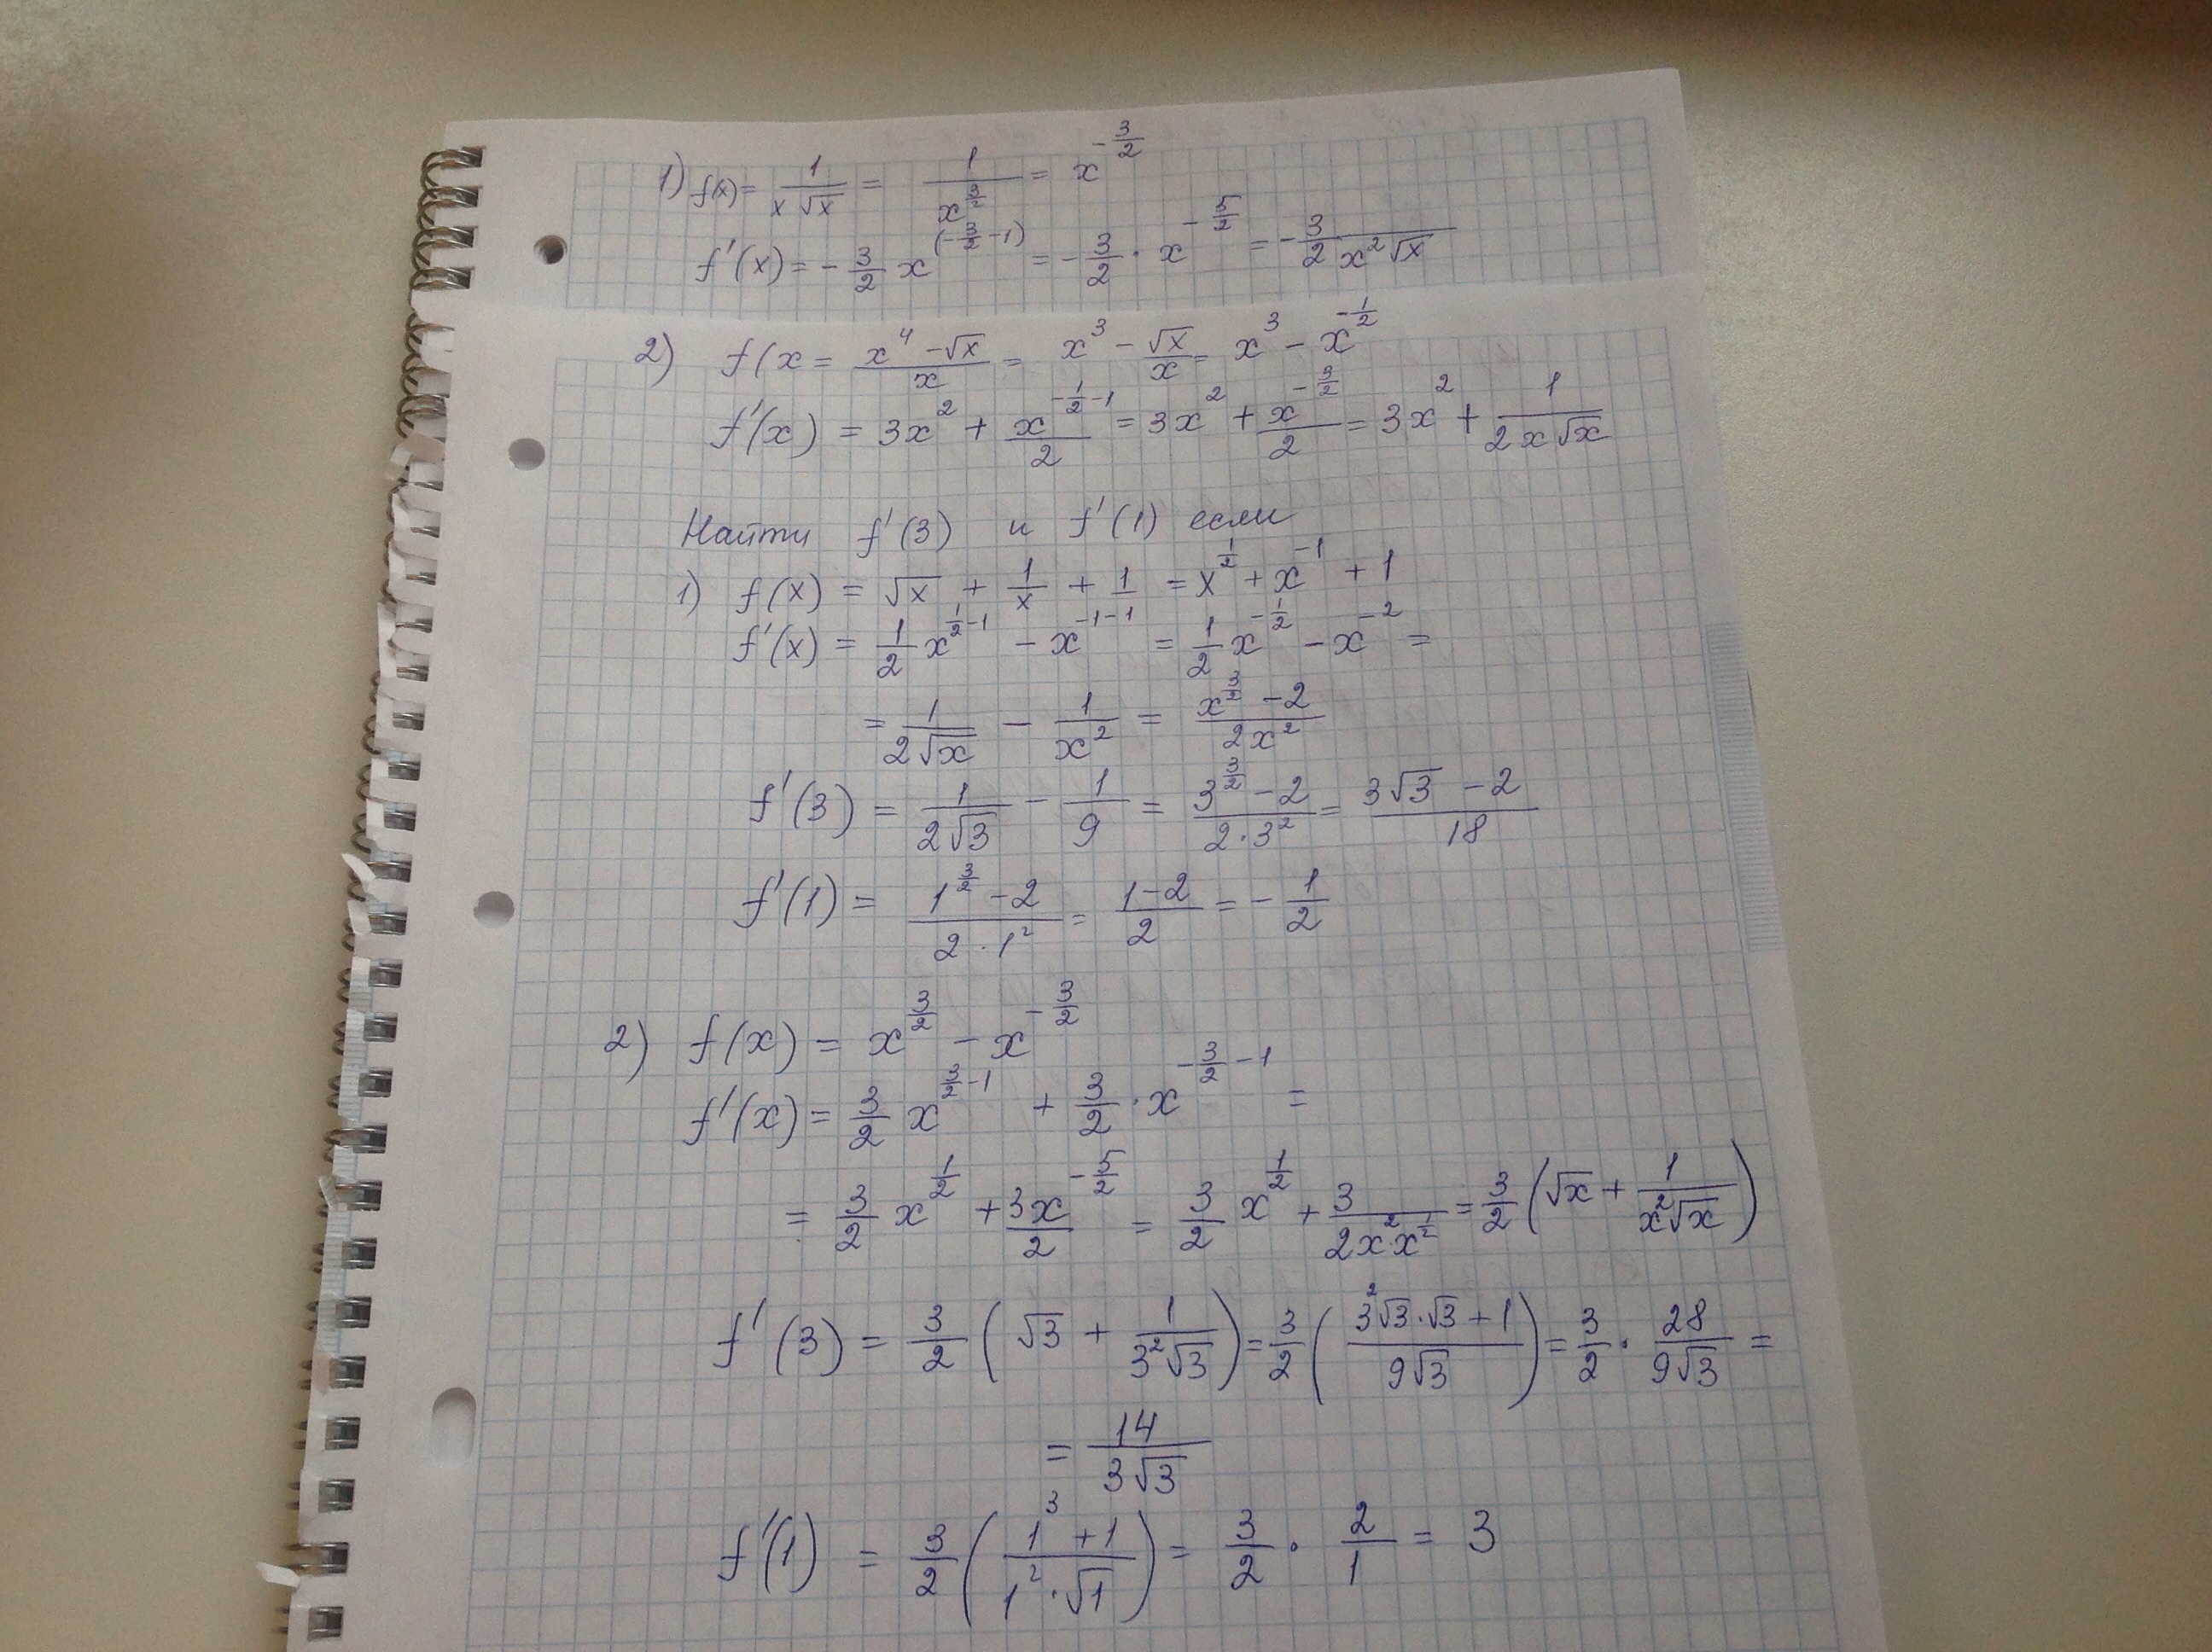 1) f(x) = 1/(x√x) = 1/x^(3/2) = x^(-3/2)
f'(x) = -3/2 x^(-3/2 - 1) = -3/2 · x^(-5/2) = -3/(2x²√x)
2) f(x = (x⁴ - √x)/x = x³ - √x/x = x³ - x^(-1/2)
f'(x) = 3x² + x^(-1/2 - 1)/2 = 3x² + x^(-3/2)/2 = 3x² + 1/(2x√x)
Найти f'(3) и f'(1) если
1) f(x) = √x + 1/x + 1 = x^(1/2) + x^(-1) + 1
f'(x) = 1/2 x^(1/2 - 1) - x^(-1-1) = 1/2 x^(-1/2) - x^(-2) =
= 1/(2√x) - 1/x² = (x^(3/2) - 2)/(2x²)
f'(3) = 1/(2√3) - 1/9 = (3^(3/2) - 2)/(2·3²) = (3√3 - 2)/18
f'(1) = (1^(3/2) - 2)/(2·1²) = (1-2)/2 = -1/2
2) f(x) = x^(3/2) - x^(-3/2)
f'(x) = 3/2 x^(3/2 - 1) + 3/2 · x^(-3/2 - 1) =
= 3/2 x^(1/2) + 3x^(-5/2)/2 = 3/2 x^(1/2) + 3/(2x²·x^(1/2)) = 3/2 (√x + 1/(x²√x))
f'(3) = 3/2 (√3 + 1/(3²√3)) = 3/2 ((3²√3·√3 + 1)/(9√3)) = 3/2 · 28/(9√3) =
= 14/(3√3)
f'(1) = 3/2 ((1³ + 1)/(1²·√1)) = 3/2 · 2/1 = 3